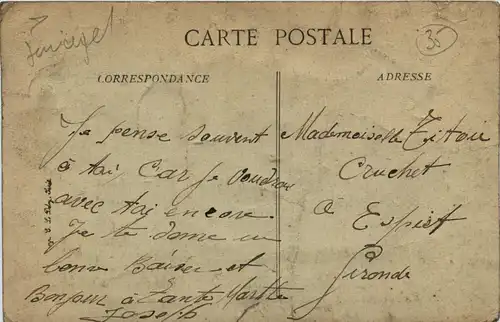 Senegal
35
CARTE POSTALE
CORRESPONDANCE
ADRESSE
Je pense souvent
à toi Car Je voudrais
avec toi encore
Je te donne un
bonne Baiser et
Bonjour à tante Marthe
Joseph
Mademoiselle
Cruchet
à Espiet
Gironde